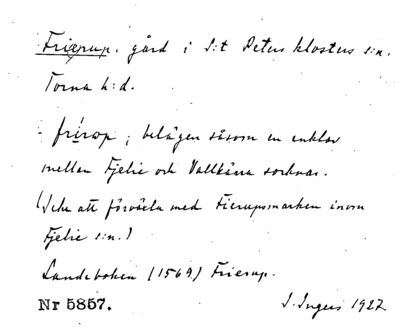 Frierup. gård i S:t Peters klosters s:n.
Torna h:d.
- frírəp ; belägen såsom en enklav
mellan Fjelie och Vallkärra socknar.
(Icke att förväxla med Fierupsmarken inom
Fjelie s:n.)
Landeboken (1569) Frierup.
Nr 5857. I. Ingers 1927